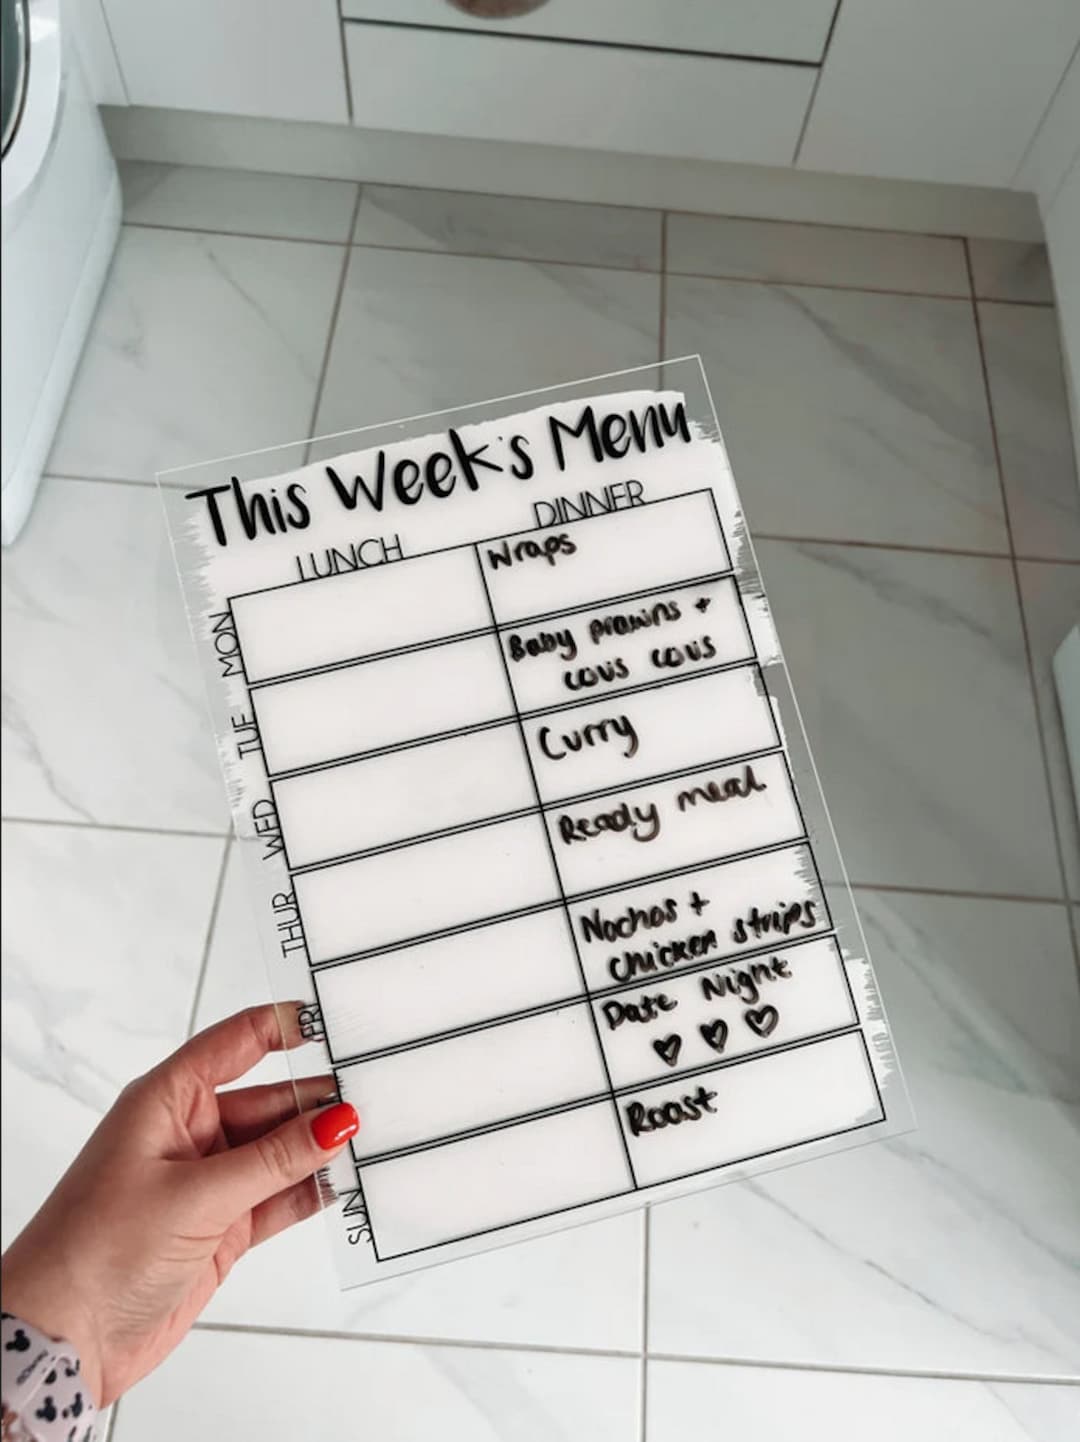 This Week's Menu
LUNCH DINNER
MON Wraps
TUE Baby prawns +
cous cous
WED Curry
THUR Ready meal
FRI Nachos +
chicken strips
Date Night
♡ ♡ ♡
SUN Roast